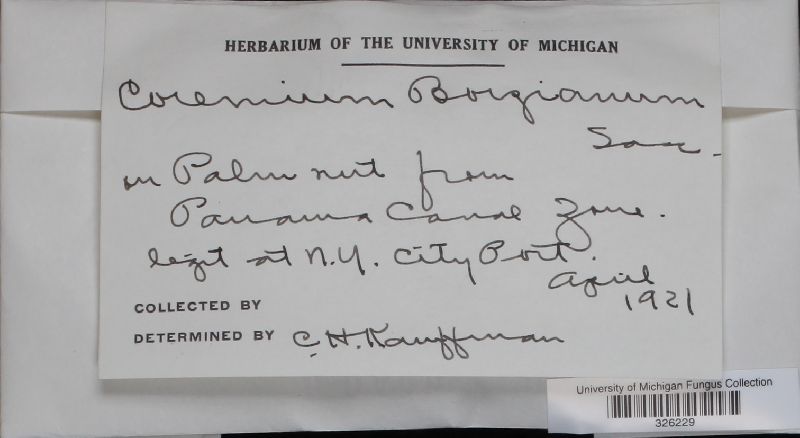 HERBARIUM OF THE UNIVERSITY OF MICHIGAN
Coremium Borzianum
Sacc.
on Palm nut from
Panama Canal Zone.
legit at N.Y. City Port.
April
1921
COLLECTED BY
DETERMINED BY C.H. Kauffman
University of Michigan Fungus Collection
326229